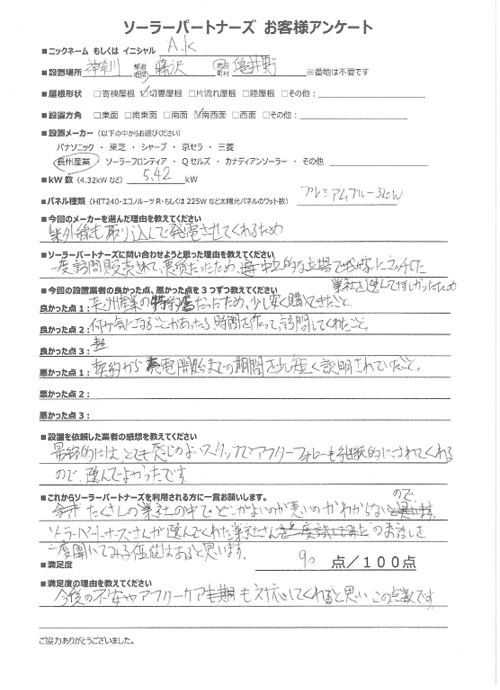 ソーラーパートナーズ お客様アンケート
■ニックネーム もしくは イニシャル A.K
■設置場所 神奈川 都道府県 藤沢 市区町村 亀井野 ※番地は不要です
■屋根形状 □寄棟屋根 ☑切妻屋根 □片流れ屋根 □陸屋根 □その他：
■設置方角 □東面 □南東面 □南面 ☑南西面 □西面 □その他：
■設置メーカー（以下の中からお選びください）
パナソニック ・ 東芝 ・ シャープ ・ 京セラ ・ 三菱
長州産業 ・ ソーラーフロンティア ・ Qセルズ ・ カナディアンソーラー ・ その他
■kW数（4.32kWなど） 5.42 kW
■パネル種類（HIT240・エコノルーツR・もしくは225Wなど太陽光パネルのワット数） プレミアムブルー
■今回のメーカーを選んだ理由を教えてください
紫外線も取り込んで発電させてくれるため
■ソーラーパートナーズに問い合わせようと思った理由を教えてください
一度訪問販売されて、だったため、中立的な立場で我が家にマッチした
業社を選んでほしかったため
■今回の設置業者の良かった点、悪かった点を3つずつ教えてください
良かった点1： 長州産業の特約店だったため、少し安く購入できたこと。
良かった点2： 何か気になることがあったら、時間を作って訪問してくれたこと。
良かった点3：
悪かった点1： 契約から発電開始までの期間を少し短く説明されていたこと。
悪かった点2：
悪かった点3：
■設置を依頼した業者の感想を教えてください
最終的には、とても感じのよいスタッフでアフターフォローも継続的にされてくれる
ので、選んでよかったです。
■これからソーラーパートナーズを利用される方に一言お願いします。
たくさんの業社の中で、どこがよいのか悪いのかわからないので
ソーラーパートナーズさんが選んでくれた業社さんのお話しを
一度聞いてみる価値はあると思います。
■満足度 90 点/100点
■満足度の理由を教えてください
今後の不安やアフターケアも対応してくれると思い この点数です
ご協力ありがとうございました。